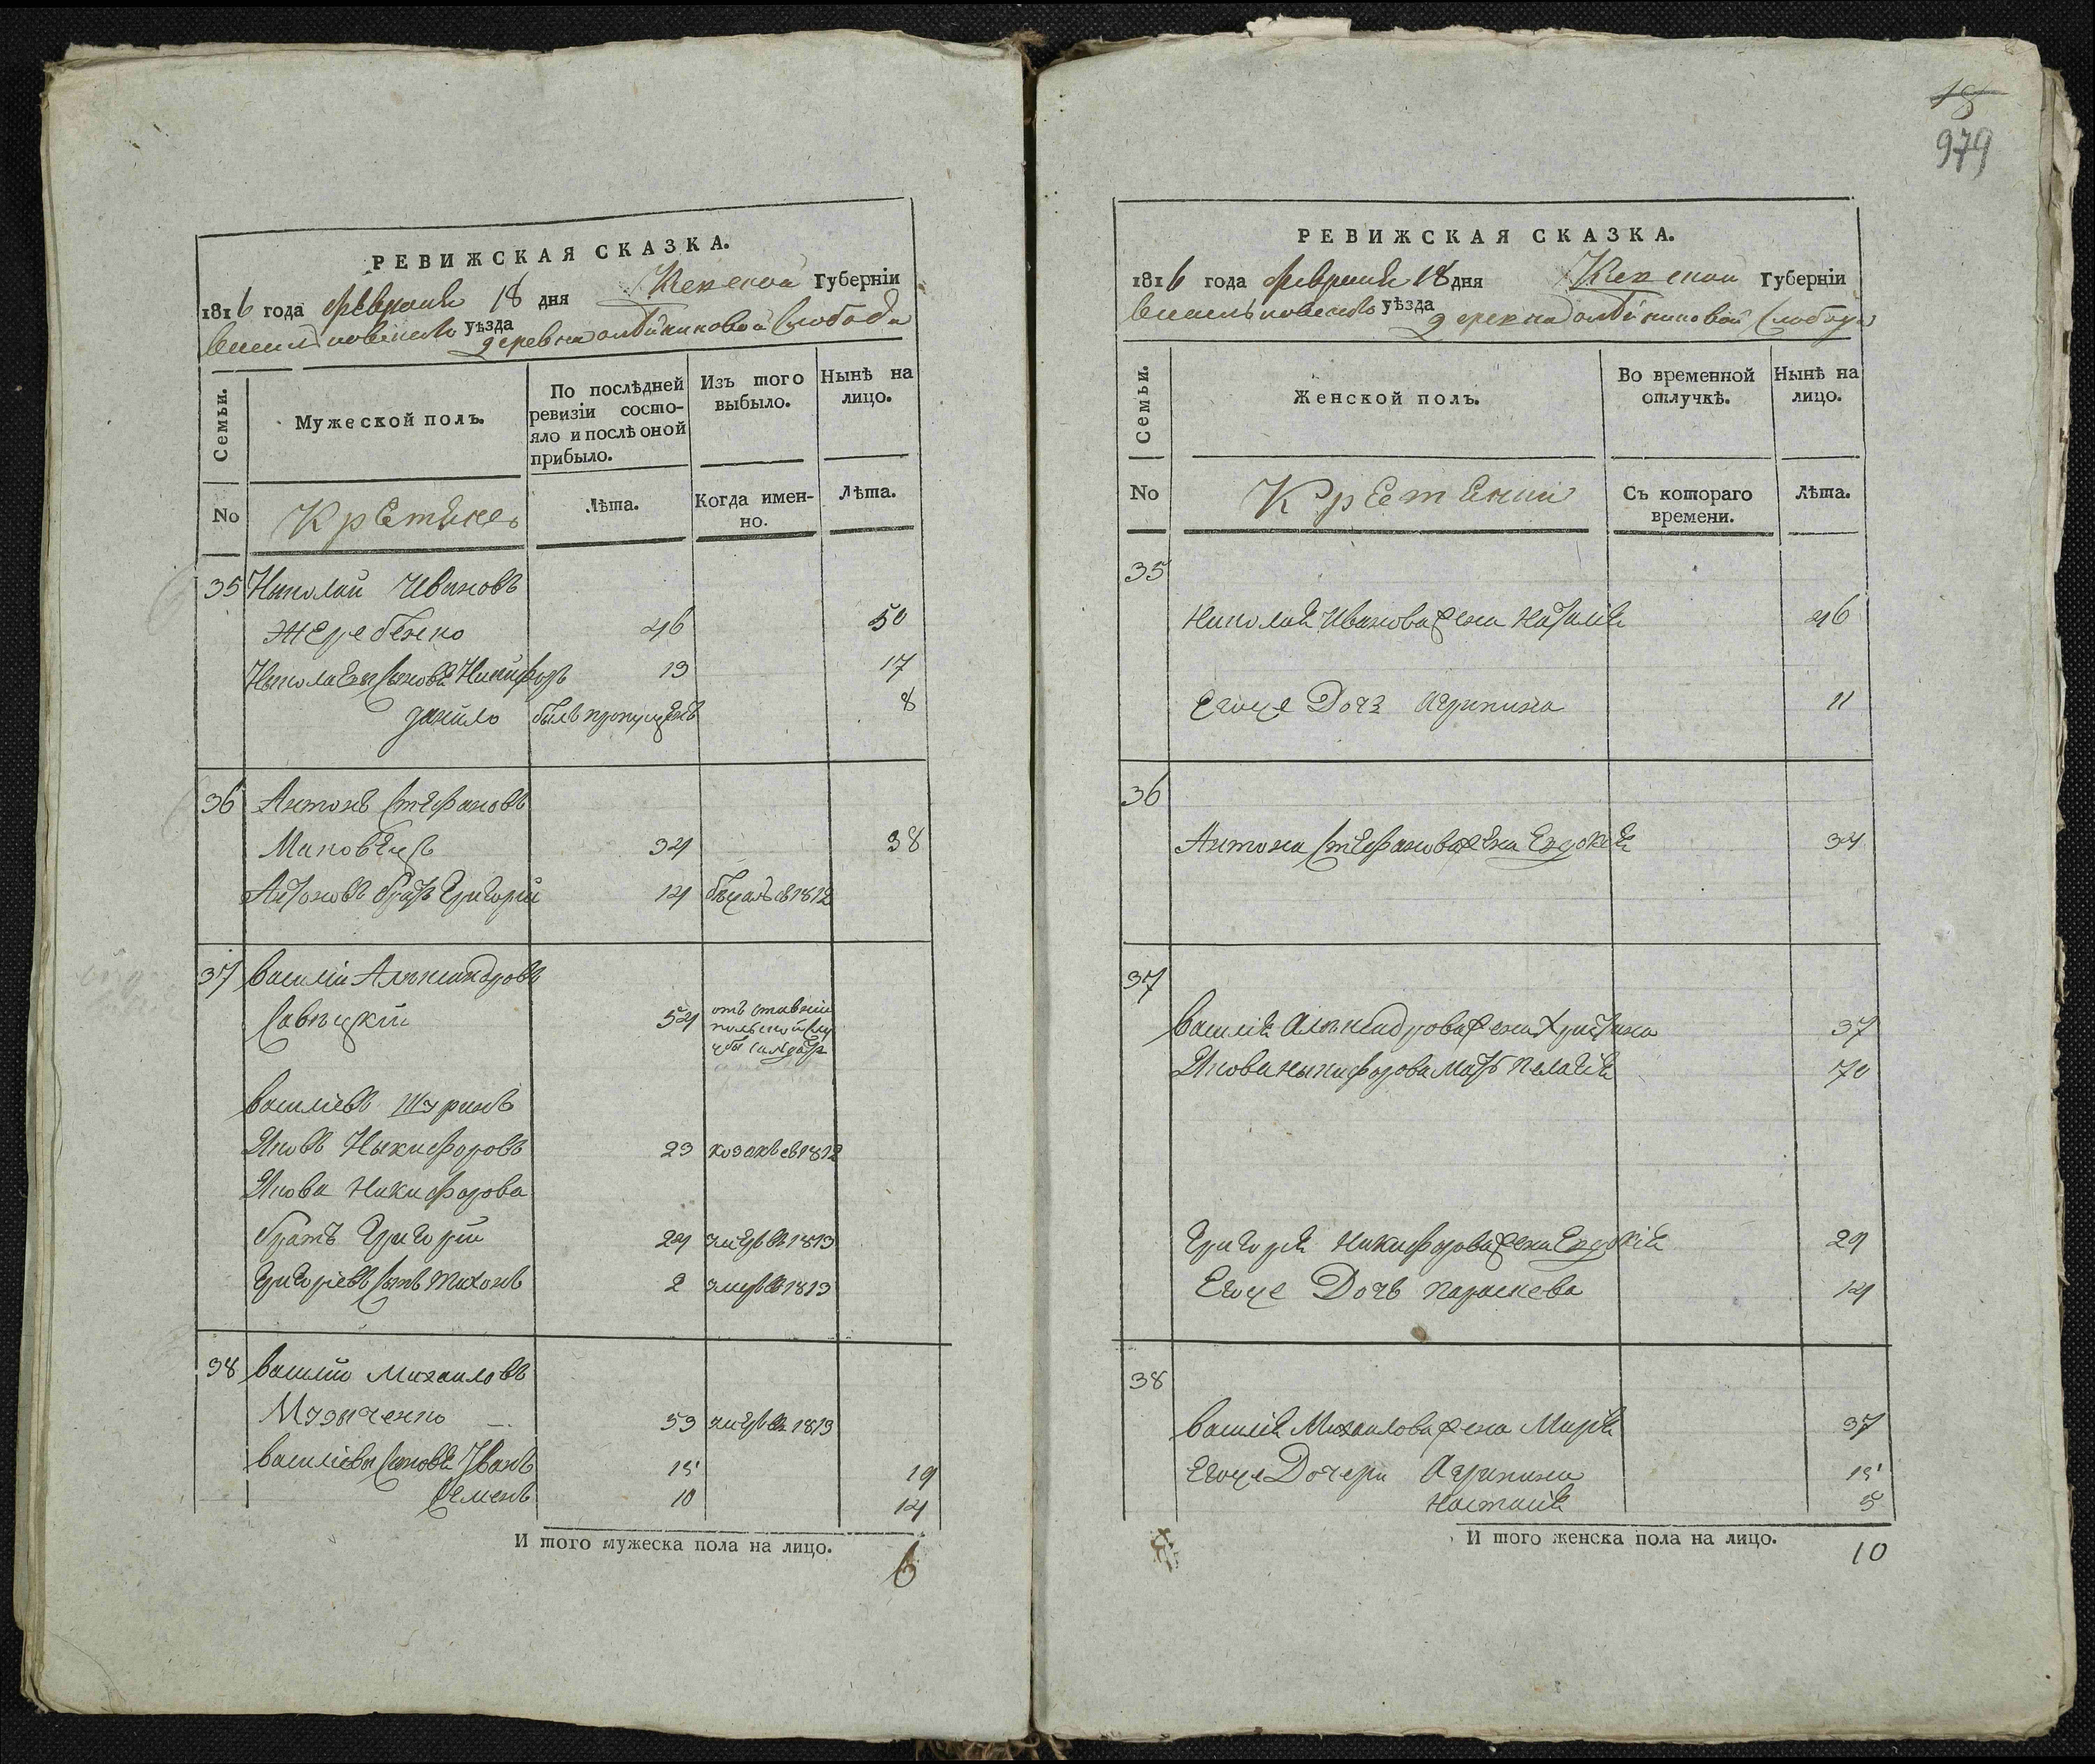 РЕВИЖСКАЯ СКАЗКА.
1816 года февраля 18 дня Кевской Губерніи
васильковского уѣзда деревна олѣйниковой слобода
Семьи. Мужеской полъ. По послѣдней ревизіи состояло и послѣ оной прибыло. Изъ того выбыло. Нынѣ на лицо.
No Крестяне Лѣта. Когда именно. Лѣта.
35 Николай Ивановъ
Жеребенко 46 50
Николаевы сыновя Никифоръ 13 17
данило былъ пропущенъ 8
36 Антонъ стефановъ
Маковецъ 34 38
Антоновъ братъ Григорій 14 бѣжалъ въ 1812
37 василій Александровъ
Савицкій 54 отъ ставній польской службы салдатъ
васильевъ Шуринъ
Яковъ Никифоровъ 23 козакъ въ 1812
Якова Никифорова
братъ Григорій 24 умеръ въ 1813
Григоріевъ сынъ Тихонъ 2 умеръ въ 1813
38 василій Михаиловъ
Музыченко 53 умеръ въ 1813
васильевы сыновя Иванъ 15 19
семенъ 10 14
И того мужеска пола на лицо. 6
18
979
РЕВИЖСКАЯ СКАЗКА.
1816 года февраля 18 дня Кевской Губерніи
васильковского уѣзда деревна олѣйниковой слобода
Семьи. Женской полъ. Во временной отлучкѣ. Нынѣ на лицо.
No Крестяни Съ котораго времени. Лѣта.
35
Николая Иванова жена Наталія 46
Егоже Дочь Агрипина 11
36
Антона стефанова жена Евдокія 34
37
василія Александрова жена Христина 37
Якова Никифорова Мать пелагія 70
Григорія Никифорова жена Евдокія 29
Егоже Дочь параскева 14
38
василія Михаилова жена Марія 37
Егоже Дочери Агрипина 15
Настасія 5
И того женска пола на лицо. 10